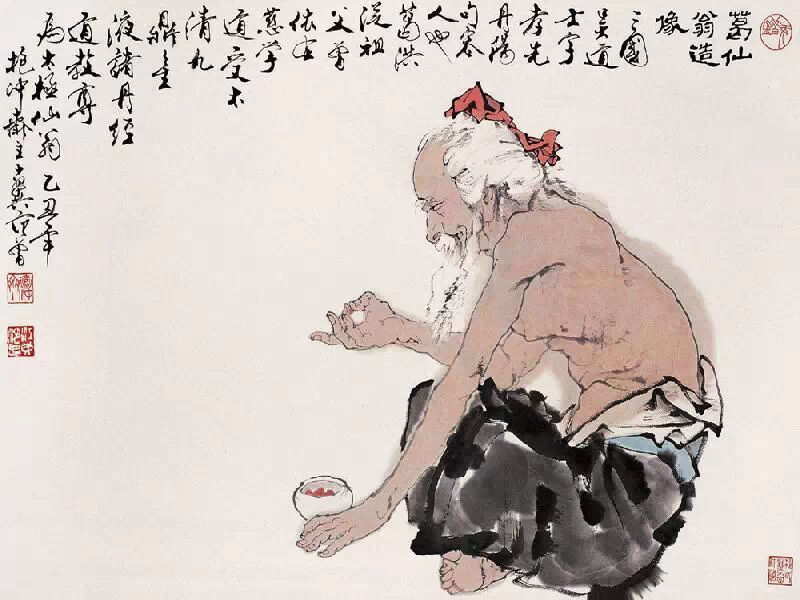 葛仙
翁造
像
三國
吴道
士字
孝先
丹陽
句容
人也
葛洪
從祖
父曾
依左
慈学
道受太
清九
鼎金
液諸丹經
道教尊
為太極仙翁 乙丑年
抱冲齋主十翼范曾